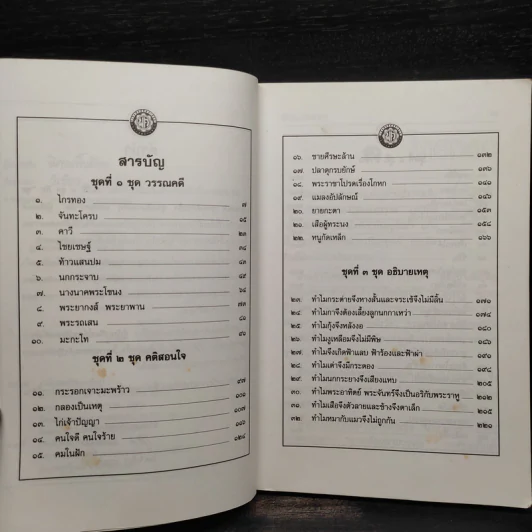 สารบัญ
ชุดที่ ๑ ชุด วรรณคดี
๑. ไกรทอง ๗
๒. จันทะโครบ ๑๕
๓. คาวี ๒๓
๔. ไชยเชษฐ์
๕. ท้าวแสนปม
๖. นกกระจาบ
๗. นางนาคพระโขนง
๘. พระยากงส์ พระยาพาน
๙. พระรถเสน
๑๐. มะกะโท
ชุดที่ ๒ ชุด คติสอนใจ
๑๑. กระรอกเจาะมะพร้าว
๑๒. กลองเป็นเหตุ ๑๐๗
๑๓. ไก่เจ้าปัญญา
๑๔. คนใจดี คนใจร้าย
๑๕. คมในฝัก
๑๖. ชายศีรษะล้าน ๑๓๒
๑๗. ปลาดุกรบยักษ์ ๑๓๖
๑๘. พระราชาโปรดเรื่องโกหก ๑๔๑
๑๙. แมลงอัปลักษณ์ ๑๔๖
๒๐. ยายกะตา ๑๕๓
๒๑. เสือผู้ทระนง ๑๕๘
๒๒. หนูกัดเหล็ก ๑๖๖
ชุดที่ ๓ ชุด อธิบายเหตุ
๒๓. ทำไมกระต่ายจึงหางสั้นและจระเข้จึงไม่มีลิ้น ๑๗๑
๒๔. ทำไมกาจึงต้องเลี้ยงลูกนกกาเหว่า
๒๕. ทำไมกุ้งจึงหลังงอ ๑๘๐
๒๖. ทำไมงูเหลือมจึงไม่มีพิษ
๒๗. ทำไมจึงเกิดฟ้าแลบ ฟ้าร้องและฟ้าผ่า ๑๙๑
๒๘. ทำไมเต่าจึงมีกระดอง
๒๙. ทำไมนกกระยางจึงเสียงแหบ ๒๐๕
๓๐. ทำไมพระอาทิตย์ พระจันทร์จึงเป็นอริกับพระราหู ๒๑๒
๓๑. ทำไมเสือจึงตัวลายและช้างจึงตาเล็ก ๒๑๕
๓๒. ทำไมหมากับแมวจึงไม่ถูกกัน ๒๒๑